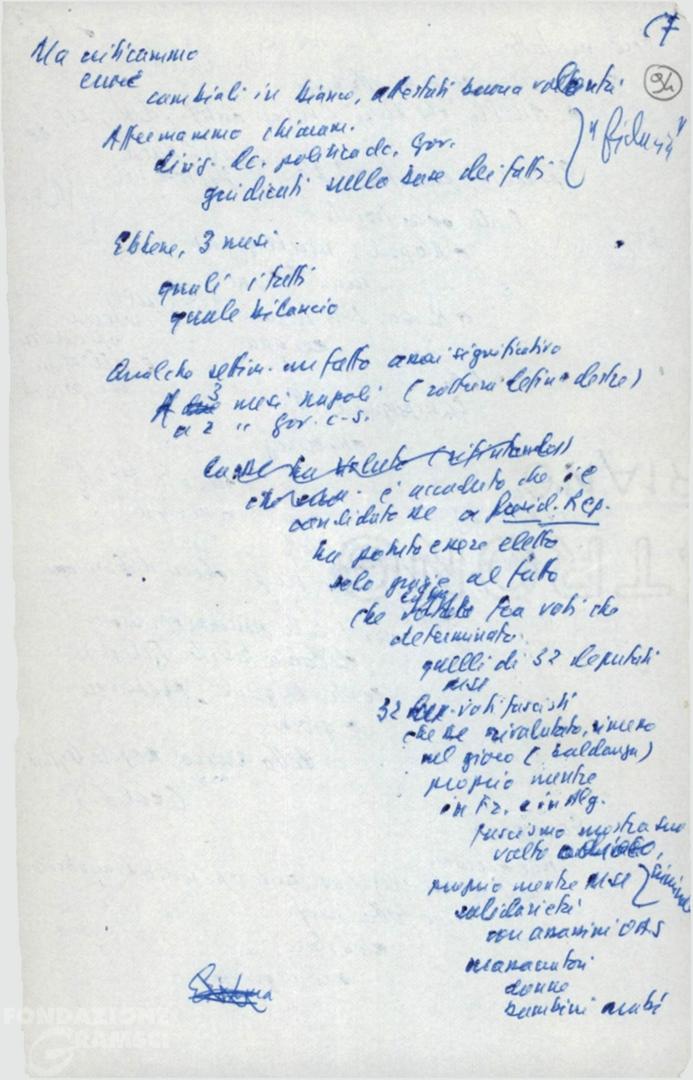 (7
94
Ma criticammo
cambiali in bianco, attestati buona volontà
Affermammo chiaram.
"fiducia"
div. politica dc. gov.
giudicati sulla base dei fatti
Ebbene, 3 mesi
quali i fatti
quale bilancio
Qualche settim. un fatto assai significativo
A 3 mesi Napoli ( destre)
a 2 " gov. c-s.
è accaduto che il
candidato DC a Presid. Rep.
ha potuto essere eletto
solo grazie al fatto
che tra voti che
determinato
quelli di 32 deputati
MSI
32 voti fascisti
che DC rivalutato, rimesso
nel gioco (baldanza)
proprio mentre
in Fr. e in Alg.
fascismo mostra suo
volto
proprio mentre MSI
solidarietà
con assassini OAS
massacratori
donne
bambini arabi
FONDAZIONE
GRAMSCI